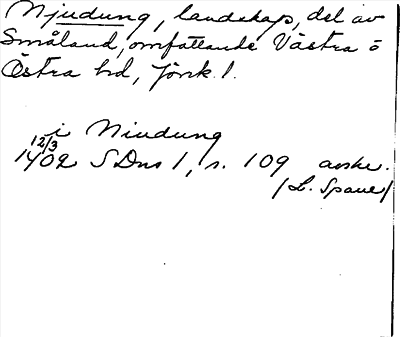 Njudung, landskap, del av
Småland, omfattande Västra o
Östra hd, Jönk. l.
i Niudung
12/3
1402 SDns 1, s. 109 avskr.
(L. Spaue)